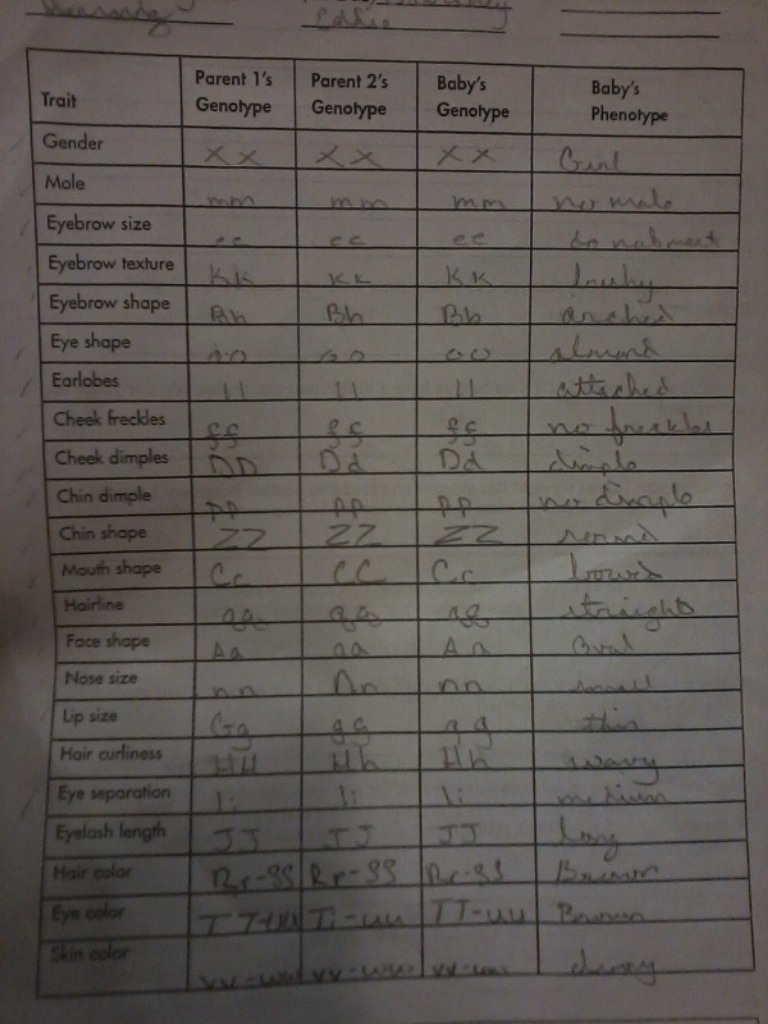 Eddie
Trait Parent 1's Genotype Parent 2's Genotype Baby's Genotype Baby's Phenotype
Gender XX XX XX Girl
Mole mm mm mm no mole
Eyebrow size ee ee ee
Eyebrow texture Kk KK Kk bushy
Eyebrow shape Bb Bb Bb arched
Eye shape oo oo oo almond
Earlobes ll ll ll attached
Cheek freckles ff ff ff no freckles
Cheek dimples DD Dd Dd dimple
Chin dimple pp pp pp no dimple
Chin shape ZZ ZZ ZZ round
Mouth shape Cc CC Cc
Hairline qq qq qq straight
Face shape Aa aa Aa Oval
Nose size nn Nn nn small
Lip size Gg gg gg thin
Hair curliness HH Hh Hh wavy
Eye separation Ii Ii Ii medium
Eyelash length JJ JJ JJ long
Hair color Rr-SS Rr-SS Rr-SS Brown
Eye color TT-uu Brown
Skin color